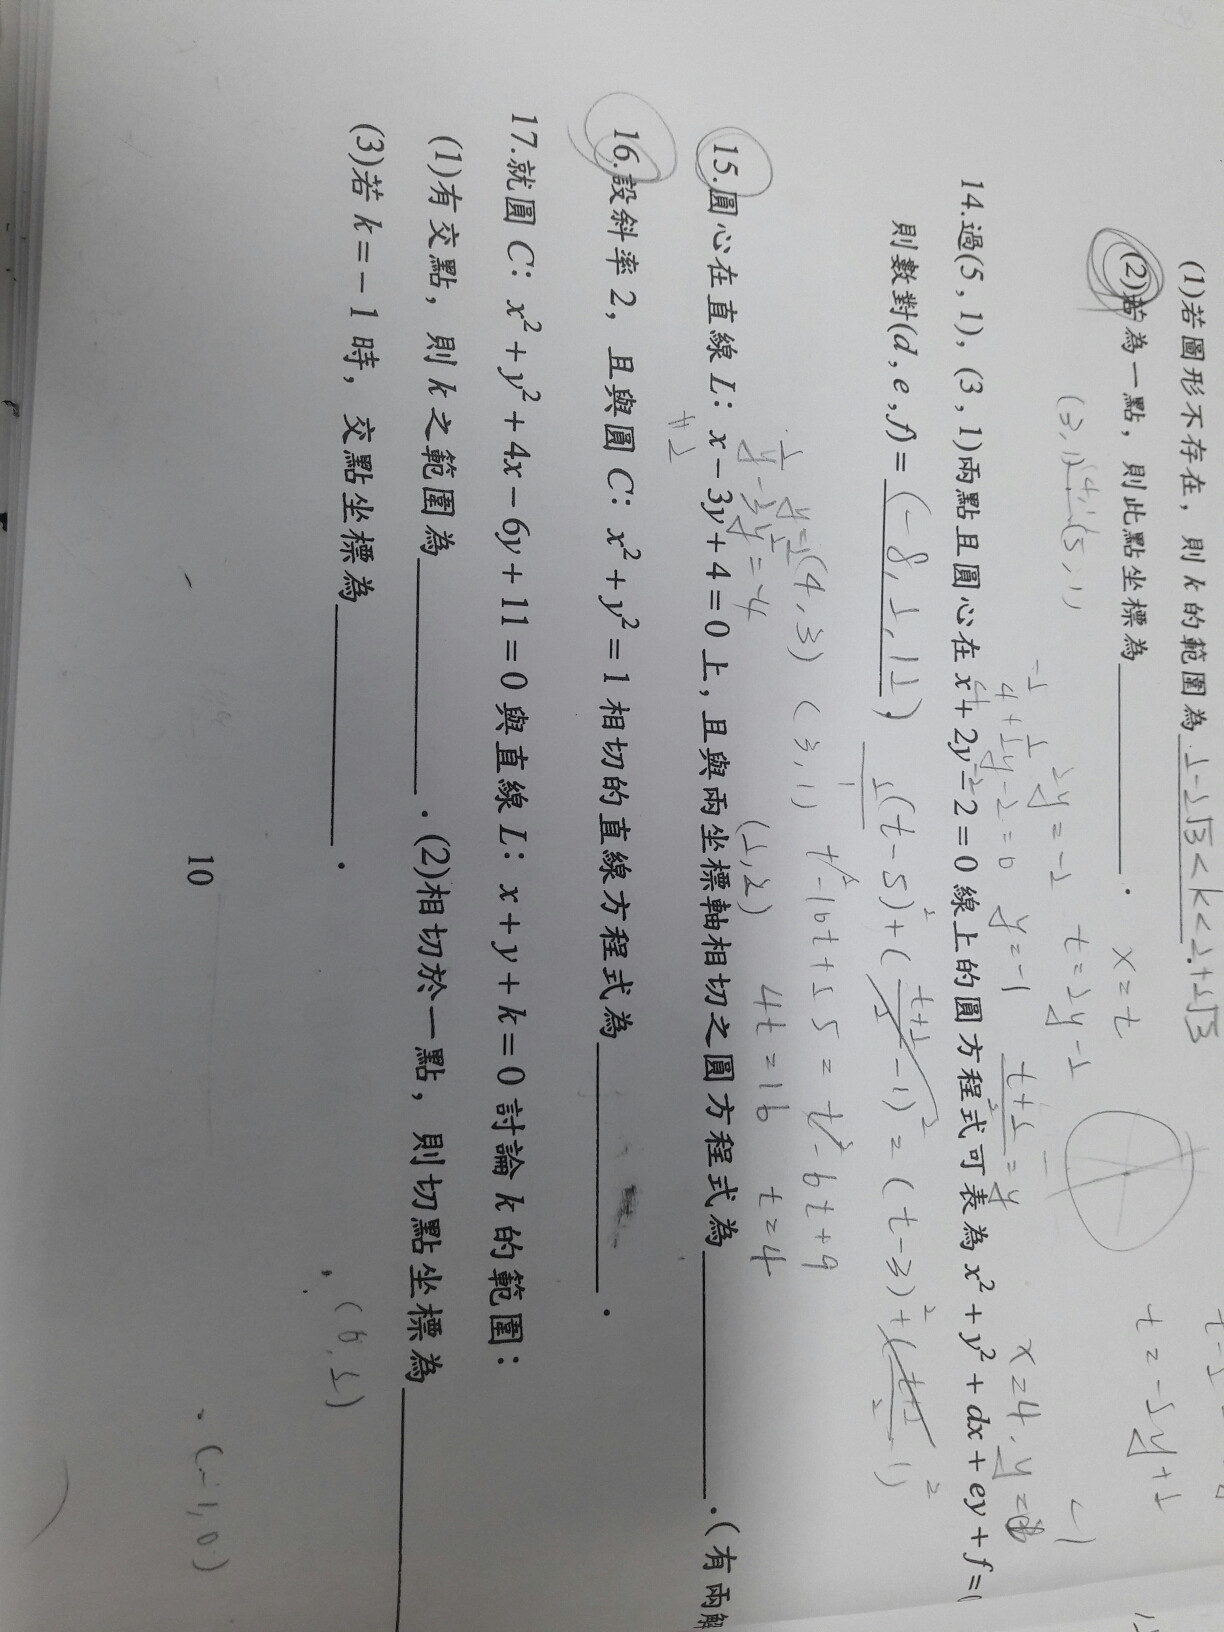 (1)若圖形不存在，則 k 的範圍為 2-2√3<k<2+2√3
(2)若為一點，則此點坐標為______．
x=t
t=-2y+2
(3,1) (4,1) (5,1)
2y=-2
t=2y-2
4+2y-2=0 y=-1
t+2/2=y
x=4, y=
-1
14.過(5,1)，(3,1)兩點且圓心在 x+2y-2=0 線上的圓方程式可表為 x²+y²+dx+ey+f=0
則數對(d,e,f)=(-8,2,12)
(t-5)²+(t+2/2-1)²=(t-3)²+(t+2/2-1)²
(4,3) (3,1) t²-10t+25=t²-6t+9
4t=16 t=4
(2,2)
15.圓心在直線 L：x-3y+4=0 上，且與兩坐標軸相切之圓方程式為______．(有兩解
y-3y=-4
y=2
16.設斜率 2，且與圓 C：x²+y²=1 相切的直線方程式為______．
17.就圓 C：x²+y²+4x-6y+11=0 與直線 L：x+y+k=0 討論 k 的範圍：
(1)有交點，則 k 之範圍為______．(2)相切於一點，則切點坐標為______
(3)若 k=-1 時，交點坐標為______．
(0,1)
(-1,0)
10